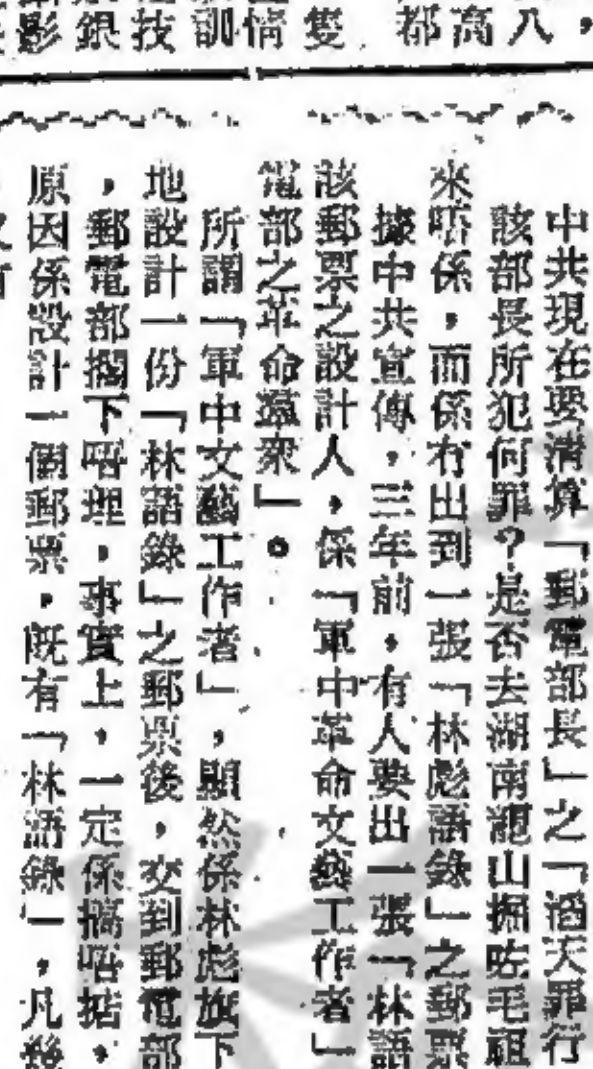 ，
八
高
都
隻
情
訓
技
銀
影
中共現在要清算「郵電部長」之「滔天罪行
該部長所犯何罪？是否去湖南韶山掘咗毛祖
來唔係，而係冇出到一張「林彪語錄」之郵票
據中共宣傳，三年前，有人要出一張「林語
該郵票之設計人，係「軍中革命文藝工作者」
電部之革命羣衆」。
所謂「軍中文藝工作者」，顯然係林彪旗下
地設計一份「林語錄」之郵票後，交到郵電部
，郵電部擱下唔理，事實上，一定係搞唔掂，
原因係設計一個郵票，既有「林語錄」，凡幾